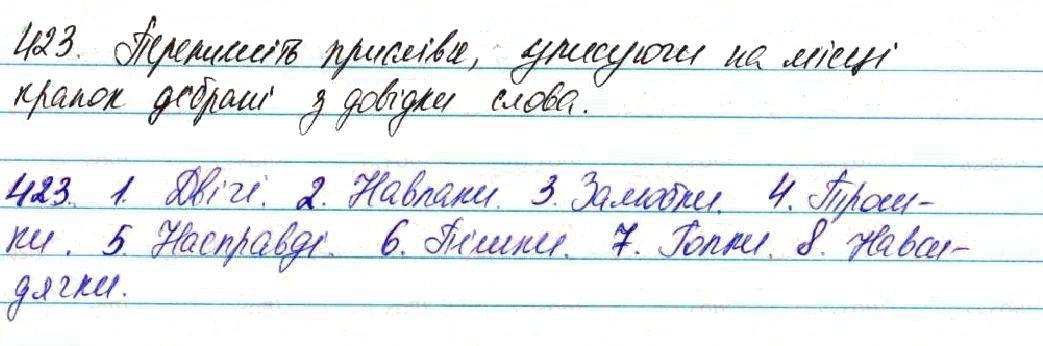 423. Перепишіть прислівя, уписуючи на місці
крапок дібрані з довідки слова.
423. 1. Двічі. 2. Навпаки. 3. Залюбки. 4. Трош-
ки. 5. Насправді. 6. Пішки. 7. Гопки. 8. Навси-
дячки.